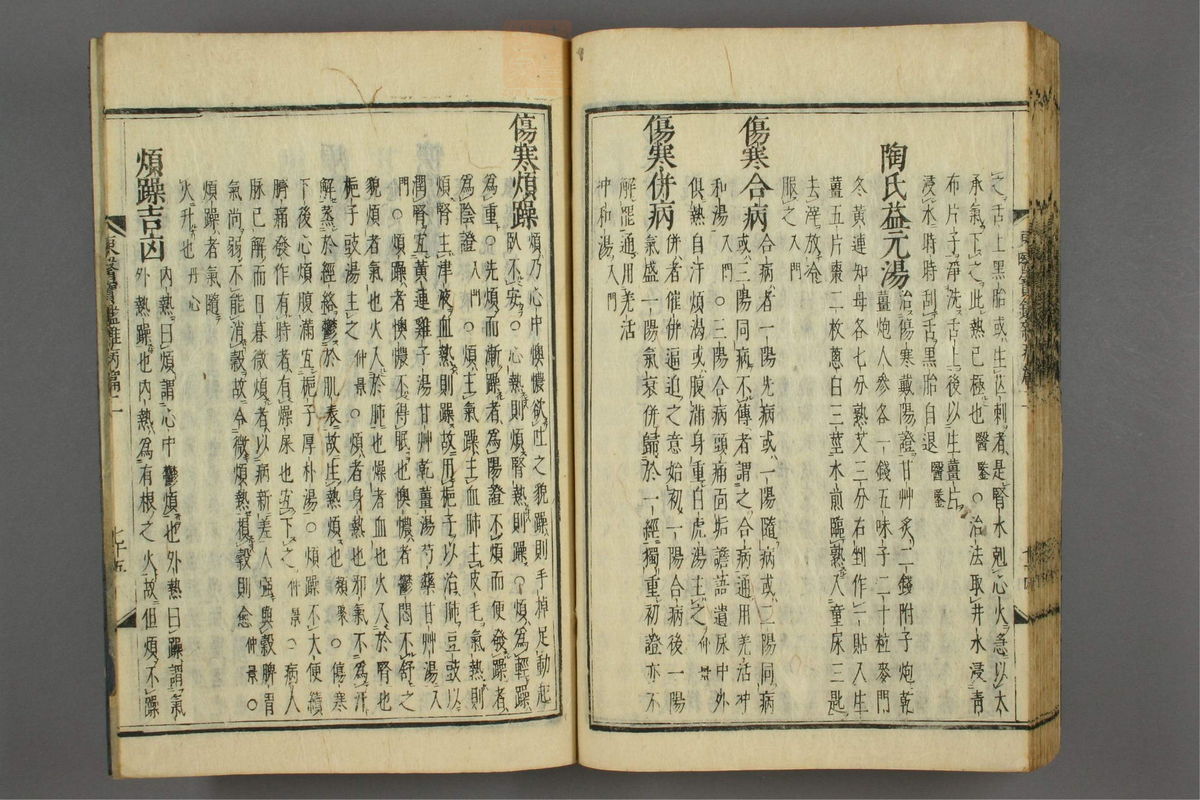 之舌上黑胎或生芒刺者是腎水剋心火急以大
承氣下之此熱已極也醫鑒○治法取井水浸靑
布片子淨洗舌上後以生薑片
浸水時時刮舌黑胎自退醫鑒
陶氏益元湯
治傷寒戴陽證甘艸炙二錢附子炮乾
薑炮人參各一錢五味子二十粒麥門
冬黃連知母各七分熟艾三分右剉作一貼入生
薑五片棗二枚蔥白三莖水煎臨熟入童尿三匙
去滓放冷
服之入門
傷寒合病
合病者一陽先病或一陽隨病或二陽同病
或三陽同病不傳者謂之合病通用羌活冲
和湯入門○三陽合病頭痛面垢譫語遺尿中外
俱熱自汗煩渴或腹滿身重白虎湯主之仲景
傷寒併病
併者催併逼迫之意始初一陽合病後一陽
氣盛一陽氣衰併歸於一經獨重初證亦不
解罷通用羌活
冲和湯入門
傷寒煩躁
煩乃心中懊憹欲吐之貌躁則手掉足動起
臥不安○心熱則煩腎熱則躁○煩爲輕躁
爲重○先煩而漸躁者爲陽證不煩而便發躁者
爲陰證入門○煩主氣躁主血肺主皮毛氣熱則
煩腎主津液血熱則躁故用梔子以治肺豆豉以
潤腎宜黃連雞子湯甘艸乾薑湯芍藥甘艸湯入
門○煩躁者懊憹不得眠也懊憹者鬱悶不舒之
貌煩者氣也火入於肺也燥者血也火入於腎也
梔子豉湯主之仲景○煩者身熱也邪氣不爲汗
解蒸於經絡鬱於肌表故生熱煩也類聚○傷寒
下後心煩腹滿宜梔子厚朴湯○煩躁不大便繞
臍痛發作有時者有燥屎也宜下之仲景○病人
脉已解而日暮微煩者以病新差人強與穀脾胃
氣尚弱不能消穀故令微煩熱損穀則愈仲景○
煩躁者氣隨
火升也丹心
煩躁吉凶
內熱曰煩謂心中鬱煩也外熱曰躁謂氣
外熱躁也內熱爲有根之火故但煩不躁
東醫寶鑑雜病篇二
七十五